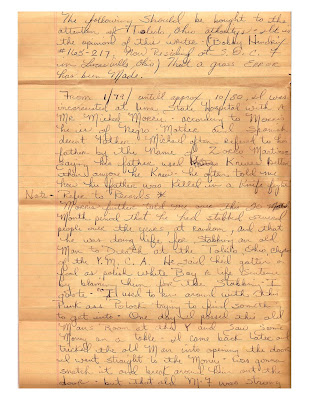 The following should be bought to the
attention of Toledo, Ohio
the opinion of this writer (Bobby Hendrix
#165-217, now Residing at S.O.C.F
in Lucasville Ohio) That a grave Error
has been Made.
From 1/79/ until approx 10/80, I was
incarcerated at Lima State Hospital with A
Mr. Michel
of Negro Mother and Spanish
decent Father. Michel often refered to his
father by the Name of
Saying his father used Knives better
than anyone he Knew. He often told me
how his father was Killed in a Knife fight
Note - Refer to Records *
father told me over the
Month period that he had stabbed several
people over the years, at random, and that
he was doing life for stabbing an old
Man to Death at the Toledo, Ohio
of the Y.M.C.A. He said he'd gotten a
polish white Boy A life Sentence
by blaming him for the Stabbing. I
quote - "I used to run around with this
Punk ass trying to find something
to get into. One day I passed this old
Man's Room at the Y and Saw Some
Money on a table. I came back later and
tricked the old Man into opening the door
I went straight to the Money. I was gonna
snatch it and break around him out the
door - but that old M.F was strong